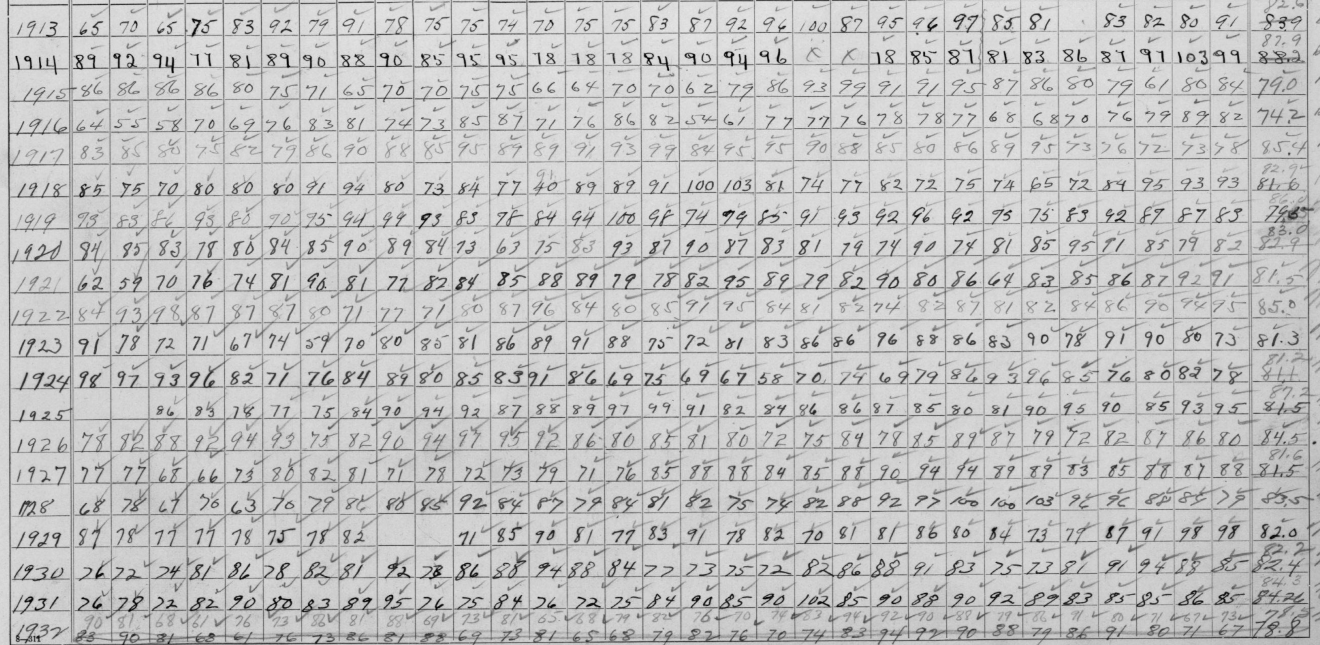 82.6
1913 65 70 65 75 83 92 79 91 78 75 75 74 70 75 75 83 87 92 96 100 87 95 96 97 85 81 83 82 80 91 83.9
87.9
1914 89 92 94 77 81 89 90 88 90 85 95 95 78 78 78 84 90 94 96 x x 78 85 87 81 83 86 87 97 103 99 88.2
1915 86 86 86 86 80 75 71 65 70 70 75 75 66 64 70 70 62 79 86 93 99 91 91 95 87 86 80 79 61 80 84 79.0
1916 64 55 58 70 69 76 83 81 74 73 85 87 71 76 86 82 54 61 77 77 76 78 78 77 68 68 70 76 79 89 82 74.2
1917 83 85 80 75 82 79 86 90 88 85 95 89 89 91 93 99 84 95 95 90 88 85 80 86 89 95 73 76 72 73 78 85.4
91 82.9
1918 85 75 70 80 80 80 91 94 80 73 84 77 40 89 89 91 100 103 81 74 77 82 72 75 74 65 72 84 95 93 93 81.6
1919 93 83 86 93 80 70 75 94 99 93 83 78 84 94 100 98 74 79 85 91 93 92 96 92 75 75 83 92 87 87 83
83.0
1920 84 85 83 78 80 84 85 90 89 84 73 63 75 83 93 87 90 87 83 81 79 74 90 74 81 85 95 71 85 79 82 82.9
1921 62 59 70 76 74 81 90 81 77 82 84 85 88 89 79 78 82 95 89 79 82 90 80 86 64 83 85 86 87 92 91 81.5
1922 84 93 98 87 87 87 80 71 77 71 80 87 96 84 80 85 91 95 84 81 82 74 82 87 81 82 84 86 90 96 95 85.0
1923 91 78 72 71 67 74 59 70 80 85 81 86 89 91 88 75 72 81 83 86 86 96 88 86 83 90 78 91 90 80 73 81.3
81.2
1924 98 97 93 96 82 71 76 84 89 80 85 83 91 86 69 75 69 67 58 70 74 69 79 86 93 96 85 76 80 82 78 81.1
87.2
1925 86 83 78 77 75 84 90 94 92 87 88 89 97 99 91 82 84 86 86 87 85 80 81 90 95 90 85 93 95 81.5
1926 78 82 88 92 94 93 75 82 90 94 97 95 92 86 80 85 81 80 72 75 84 78 85 89 87 79 72 82 87 86 80 84.5
81.6
1927 77 77 68 66 73 80 82 81 71 78 72 73 79 71 76 85 88 88 84 85 88 90 94 94 89 89 83 85 88 87 88 81.5
1928 68 78 67 70 63 70 79 86 80 85 92 84 87 79 84 81 82 75 74 82 88 92 97 100 100 103 96 96 88 85 79 83.5
1929 87 78 77 77 78 75 78 82 71 85 90 81 77 83 91 78 82 70 81 81 86 80 84 73 77 87 91 98 98 82.0
82.2
1930 76 72 74 81 86 78 82 81 92 78 86 88 94 88 84 77 73 75 72 82 86 88 91 83 75 73 81 91 94 88 85 82.4
84.3
1931 76 78 72 82 90 80 83 89 95 76 75 84 76 72 75 84 90 85 90 102 85 90 88 90 92 89 83 85 85 86 85
90 81 68 61 76 73 86 81 88 69 73 81 65 68 79 82 76 70 74 83 94 92 90 88 79 86 91 80 71 67 73 78.5
1932 83 90 81 68 61 76 73 86 81 88 69 73 81 65 68 79 82 76 70 74 83 94 92 90 88 79 86 91 80 71 67 78.8